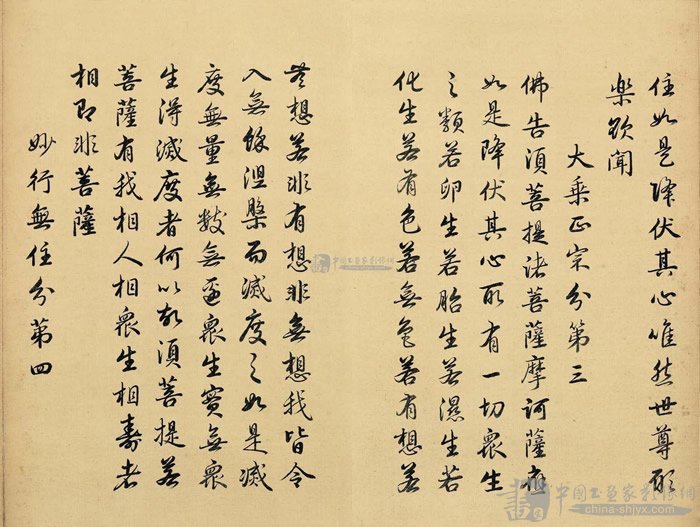 住如是降伏其心唯然世尊願
樂欲聞
大乘正宗分第三
佛告須菩提諸菩薩摩訶薩應
如是降伏其心所有一切眾生
之類若卵生若胎生若濕生若
化生若有色若無色若有想若
無想若非有想非無想我皆令
入無餘涅槃而滅度之如是滅
度無量無數無邊眾生實無眾
生得滅度者何以故須菩提若
菩薩有我相人相眾生相壽者
相即非菩薩
妙行無住分第四
中國書畫家影像網
china-shjyx.com